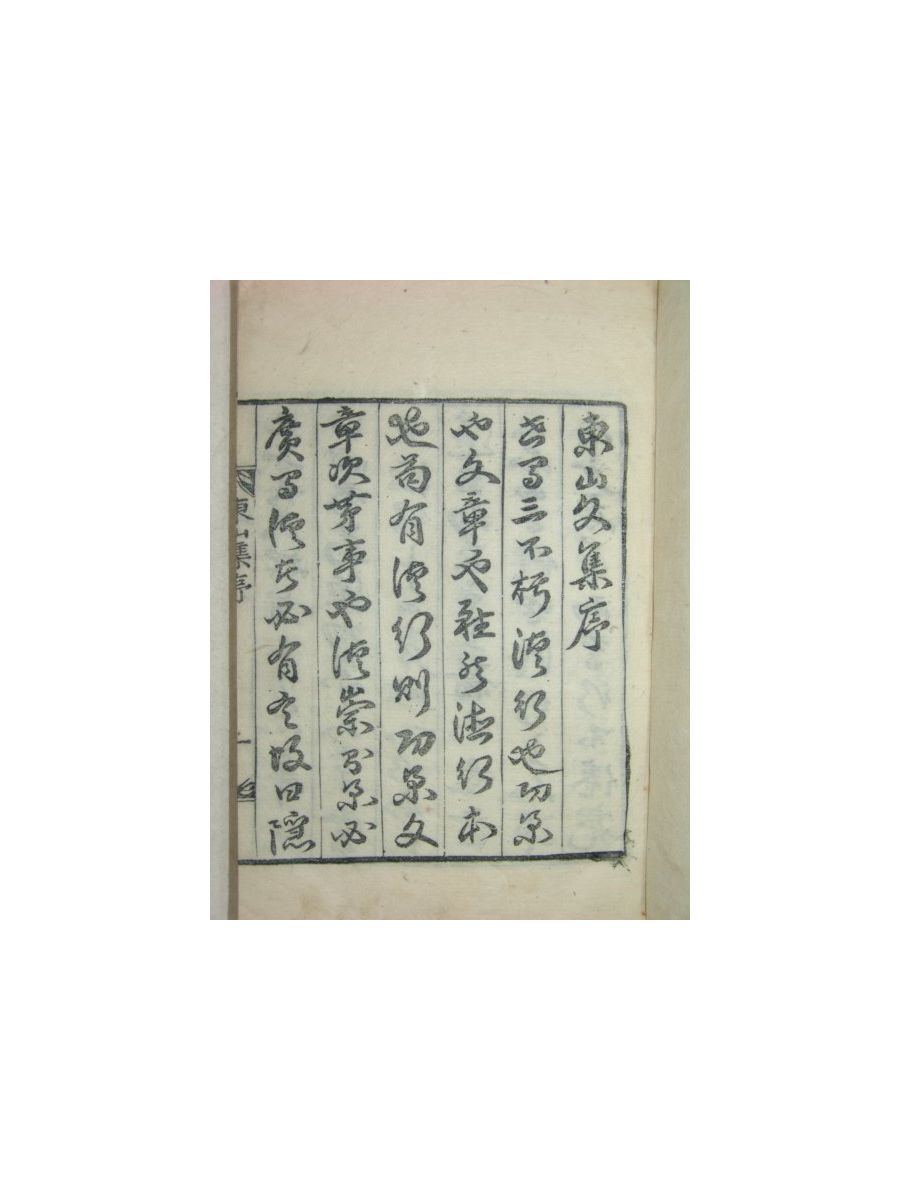 東山文集序
世有三不朽德行也功業
也文章也雖然德行本
也苟有德行則功業文
章次第事也德崇業必
廣有德者必有言故曰隱
東山集序
一